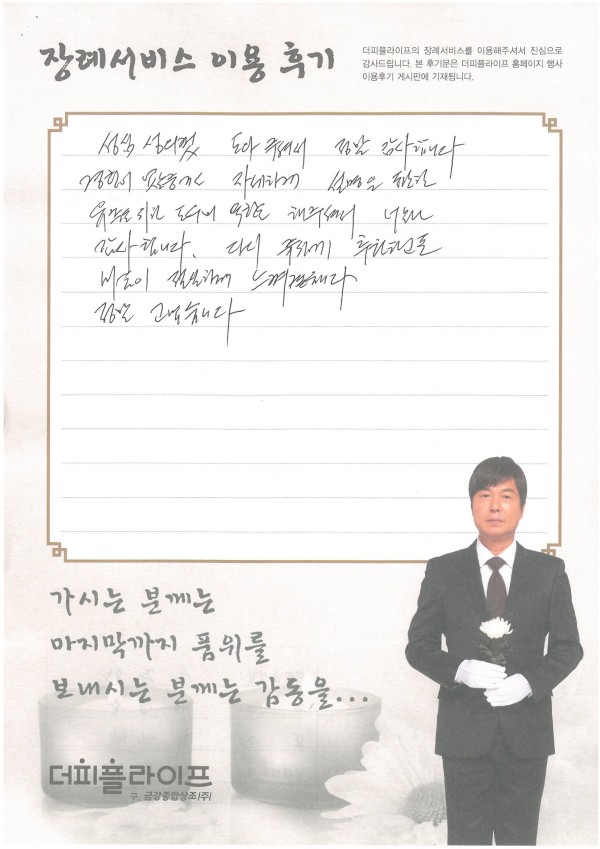 장례서비스 이용 후기
더피플라이프의 장례서비스를 이용해주셔서 진심으로
감사드립니다. 본 후기문은 더피플라이프 홈페이지 행사
이용후기 게시판에 기재됩니다.
성심 성의껏 도와 주셔서 정말 감사합니다
자세하게 설명을
역할도 해주셔서 너무나
감사합니다. 다시
느껴집니다
정말 고맙습니다
가시는 분께는
마지막까지 품위를
보내시는 분께는 감동을...
더피플라이프
구. 금강종합상조(주)